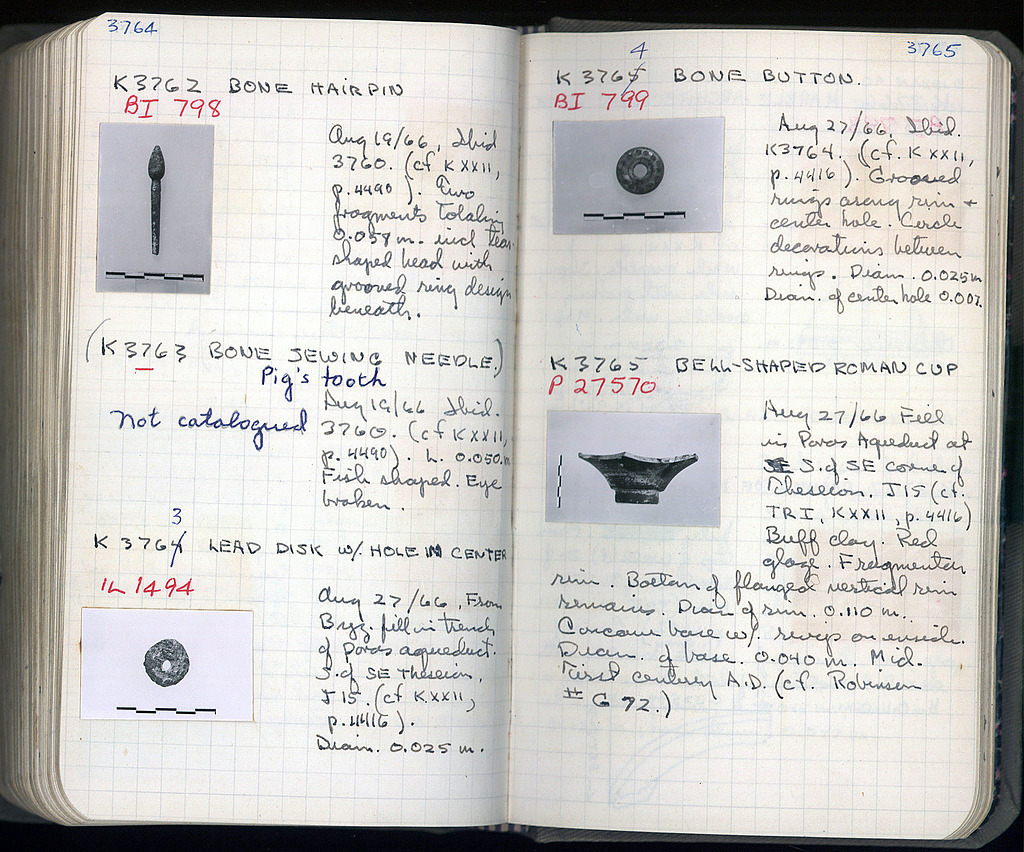 3764
K 3762 BONE HAIRPIN
BI 798
Aug 19/66, Ibid
3760. (cf K XXII,
p. 4490). Two
fragments totaling
0.058 m. incl tear
shaped head with
grooved ring design
beneath.
(K 3763 BONE SEWING NEEDLE.)
Pig's tooth
Not catalogued
Aug 19/66 Ibid.
3760. (cf K XXII,
p. 4490). L. 0.050 m
Fish shaped. Eye
broken.
3
K 3764 LEAD DISK W/. HOLE IN CENTER
IL 1494
Aug 27/66, From
Byz. fill in trench
of poros aqueduct.
S. of SE Theseion,
J 15. (cf K XXII,
p. 4416).
Diam. 0.025 m.
3765
4
K 3765 BONE BUTTON.
BI 799
Aug 27/66, Ibid.
K3764. (cf. K XXII,
p. 4416). Grooved
rings along rim +
center hole. Circle
decorations between
rings. Diam. 0.025 m
Diam. of center hole 0.007.
K 3765 BELL-SHAPED ROMAN CUP
P 27570
Aug 27/66 Fill
in Poros Aqueduct at
S. of SE corner of
Theseion. J15 (cf.
TRI, K XXII, p. 4416)
Buff clay. Red
glaze. Fragmentary
rim. Bottom of flanged vertical rim
remains. Diam of rim. 0.110 m.
Concave base w/. rings on inside.
Diam. of base. 0.040 m. Mid.
First century A.D. (cf. Robinson
# G 72.)